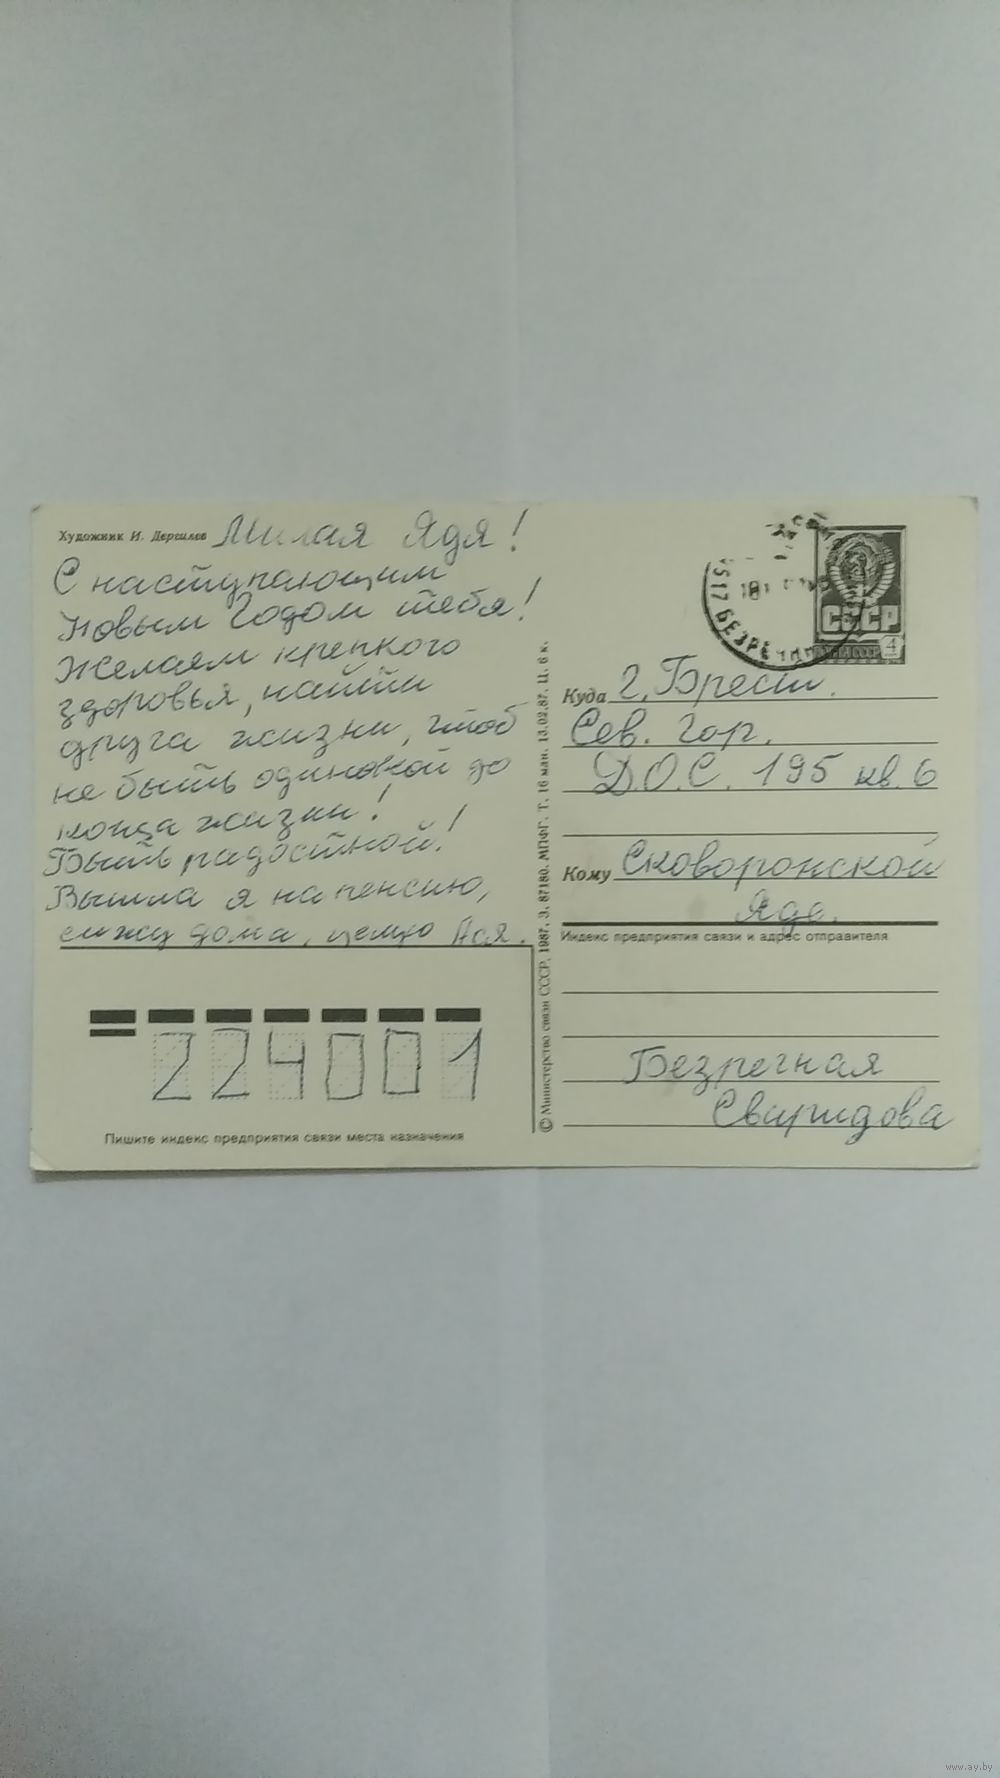 Художник И. Дергилев
Милая Ядя!
С наступающим
Новым Годом тебя!
Желаем крепкого
здоровья, найти
друга жизни, чтоб
не быть одинокой до
конца жизни!
Быть радостной!
Вышла я на пенсию,
сижу дома, целую Ася.
224001
Пишите индекс предприятия связи места назначения
© Министерство связи СССР, 1987. З. 87180. МПФГ. Т. 16 млн. 13.02.87. Ц. 6 к.
517 БЕЗРЕЧН
СССР
4
Куда г. Брест.
Сев. Гор.
Д.О.С. 195 кв. 6
Кому Сковоронской
Яде.
Индекс предприятия связи и адрес отправителя
Безречная
Свиридова
www.ay.by